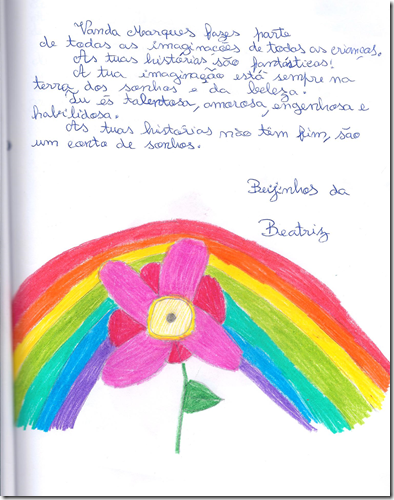 Vanda Marques fazes parte
de todas as imaginações de todas as crianças.
As tuas histórias são fantásticas!
A tua imaginação está sempre na
terra dos sonhos e da beleza.
Tu és talentosa, amorosa, engenhosa e
habilidosa.
As tuas histórias não têm fim, são
um conto de sonhos.
Beijinhos da
Beatriz